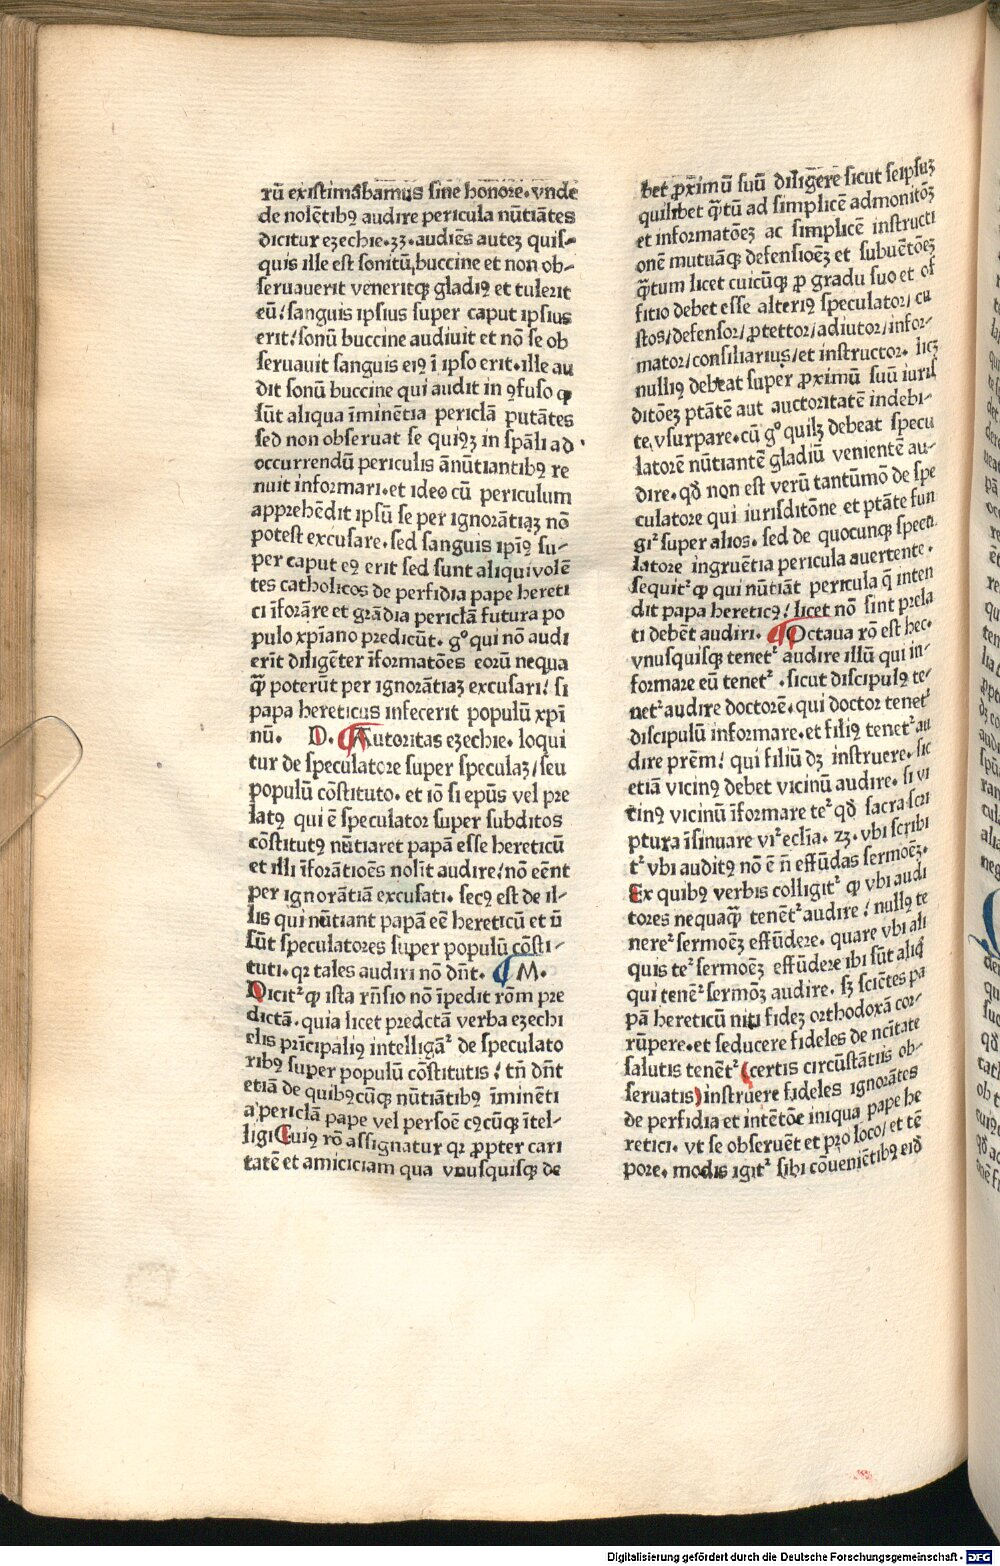 rū existimabamus sine honore. vnde
de nolētibꝰ audire pericula nūtiātes
dicitur ezechie. 33. audiēs autez quis-
quis ille est sonitū buccine et non ob-
seruauerit veneritqꝫ gladiꝰ et tulerit
eū/ sanguis ipsius super caput ipsius
erit/ sonū buccine audiuit et nō se ob
seruauit sanguis eiꝰ ī ipso erit. ille au
dit sonū buccine qui audit in ꝯfuso ꝙ
sūt aliqua īminētia periclā putātes
sed non obseruat se quiꝫ in spāli ad
occurrendū periculis ānūtiantibꝰ re
nuit informari. et ideo cū periculum
apprehēdit ipsū se per ignorātiaꝫ nō
potest excusare. sed sanguis ipiꝰ su-
per caput eꝰ erit sed sunt aliqui volē
tes catholicos de perfidia pape hereti
ci īforāre et grādia periclā futura po
pulo xp̄iano predicūt. gº qui nō audi
erīt diligēter īformatōes eorū nequa
ꝙ̄ poterūt per ignorātiaꝫ excusari/ si
papa hereticus infecerit populū xp̄i
nū. D. ¶ Autoritas ezechie. loqui
tur de speculatore super speculaꝫ/ seu
populū cōstituto. et iō si ep̄us vel pre
latꝰ qui ē speculator super subditos
cōstitutꝰ nūtiaret papā esse hereticū
et illi īforātioēs nolīt audire/ nō eēnt
per ignorātiā excusati. secꝰ est de il-
lis qui nūtiant papā eē hereticū et n̄
sūt speculatores super populū cōsti-
tuti. qꝛ tales audiri nō dn̄t. ¶ M.
Dicitᷣ ꝙ ista rn̄sio nō īpedit rōm pre
dictā. quia licet predctā verba ezechi
elis prīcipaliꝰ intelligāᷣ de speculato
ribꝰ super populū cōstitutis/ tn̄ dn̄t
etiā de quibꝰcūqꝫ nūtiātibꝰ īminēti
a periclā pape vel persoē cꝰcūqꝫ ītel-
ligi Cuiꝰ rō assignatur qꝛ ꝓpter cari
tatē et amiciciam qua vnusquisqꝫ de
bet ꝓximū suū diligere sicut seipsuꝫ
quilibet ꝙ̄tū ad simplicē admonitōꝫ
et informatōeꝫ ac simplicē instructi
onē mutuāqꝫ defensioēꝫ et subuētōeꝫ
ꝙ̄tum licet cuicūqꝫ ꝓ gradu suo et of
fitio debet esse alteriꝰ speculator/ cu
stos/ defensor/ ꝓtettor/ adiutor/ infor-
mator/ consiliarius/ et instructor. licꝫ
nulliꝰ debeat super ꝓximū suū iuris
ditōeꝫ ptātē aut auctoritatē indebi-
te vsurpare. cū gº quilꝫ debeat specu
latorē nūtiantē gladiū venientē au-
dire. qđ non est verū tantūmō de spe
culatore qui iurisditōne et ptāte fun
giᷣ super alios. sed de quocunqꝫ specu
latore ingruētia pericula auertente.
sequitᷣ ꝙ qui nūtiāt pericula q̄ inten
dit papa hereticꝰ/ licet nō sint prela
ti debēt audiri. ¶ Octaua rō est hec.
vnusquisqꝫ tenetᷣ audire illū qui in-
formare eū tenetᷣ. sicut discipulꝰ te-
netᷣ audire doctorē. qui doctor tenetᷣ
discipulū informare. et filiꝰ tenetᷣ au
dire prēm/ qui filiū dꝫ instruere. sic
etiā vicinꝰ debet vicinū audire. si vi
cinꝰ vicinū īformare teᷣ qđ sacra scri
ptura īsinuare viᷣ eccīia. 23. vbi scribi
tᷣ vbi auditꝰ nō ē n̄ effūdas sermoēꝫ.
Ex quibꝰ verbis colligitᷣ ꝙ vbi audi
tores nequaꝙ̄ tenētᷣ audire/ nullꝰ te
nereᷣ sermoēꝫ effūdere. quare vbi ali
quis teᷣ sermoēꝫ effūdere ibi sūt aliq̄
qui tenēᷣ sermōꝫ audire. sꝫ sciētes pa
pā hereticū niti fideꝫ orthodoxā cor-
rūpere. et seducere fideles de nc̄itate
salutis tenētᷣ (certis circūstātiis ob-
seruatis) instruere fideles ignorātes
de perfidia et intētōe iniqua pape he
retici. vt se obseruēt et pro loco/ et tē
pore. modis igitᷣ sibi cōueniētibꝰ eiđ
Digitalisierung gefördert durch die Deutsche Forschungsgemeinschaft - DFG